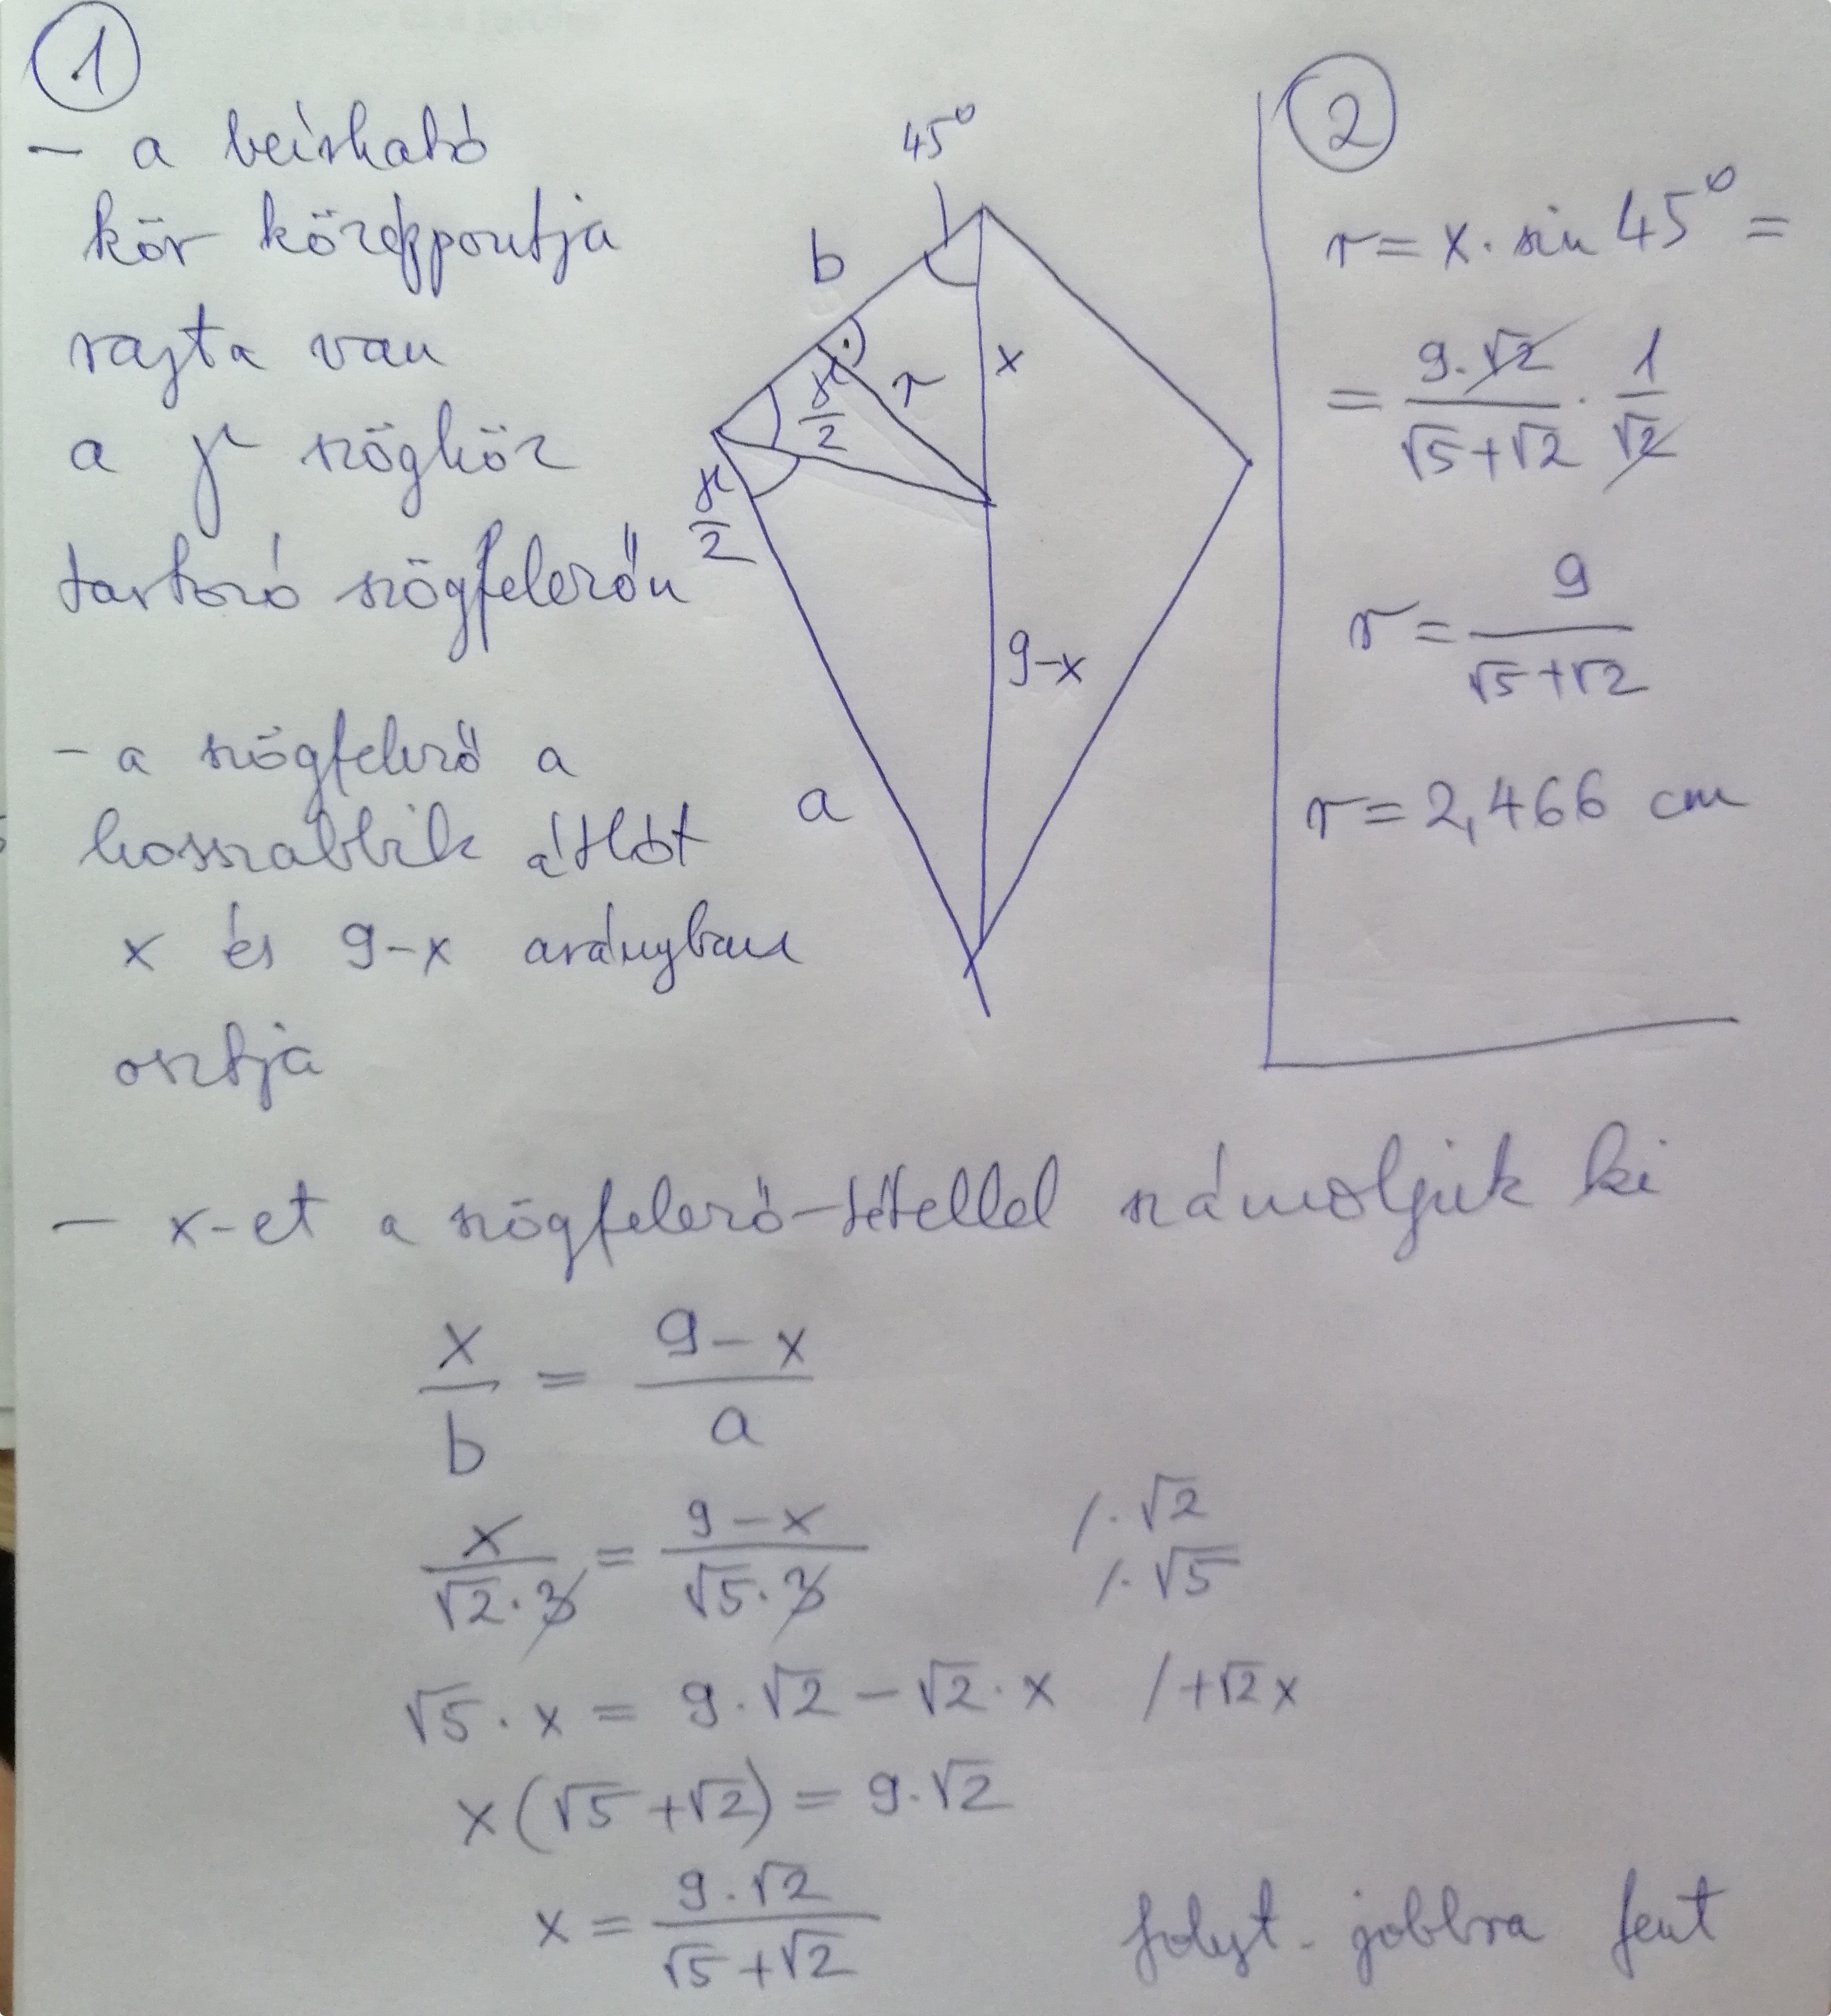 1
- a beírható
kör középpontja
rajta van
a γ szöghöz
tartozó szögfelezőn
- a szögfelező a
hosszabbik átlót
x és 9-x arányban
osztja
45°
b
x
r
γ/2
γ/2
9-x
a
2
r = x · sin 45° =
= 9·√2/(√5+√2) · 1/√2
r = 9/(√5+√2)
r = 2,466 cm
- x-et a szögfelező-tétellel számoljuk ki
x/b = (9-x)/a
x/(√2·3) = (9-x)/(√5·3) /·√2
/·√5
√5·x = 9·√2 - √2·x /+√2x
x(√5+√2) = 9·√2
x = 9·√2/(√5+√2)
folyt. jobbra fent